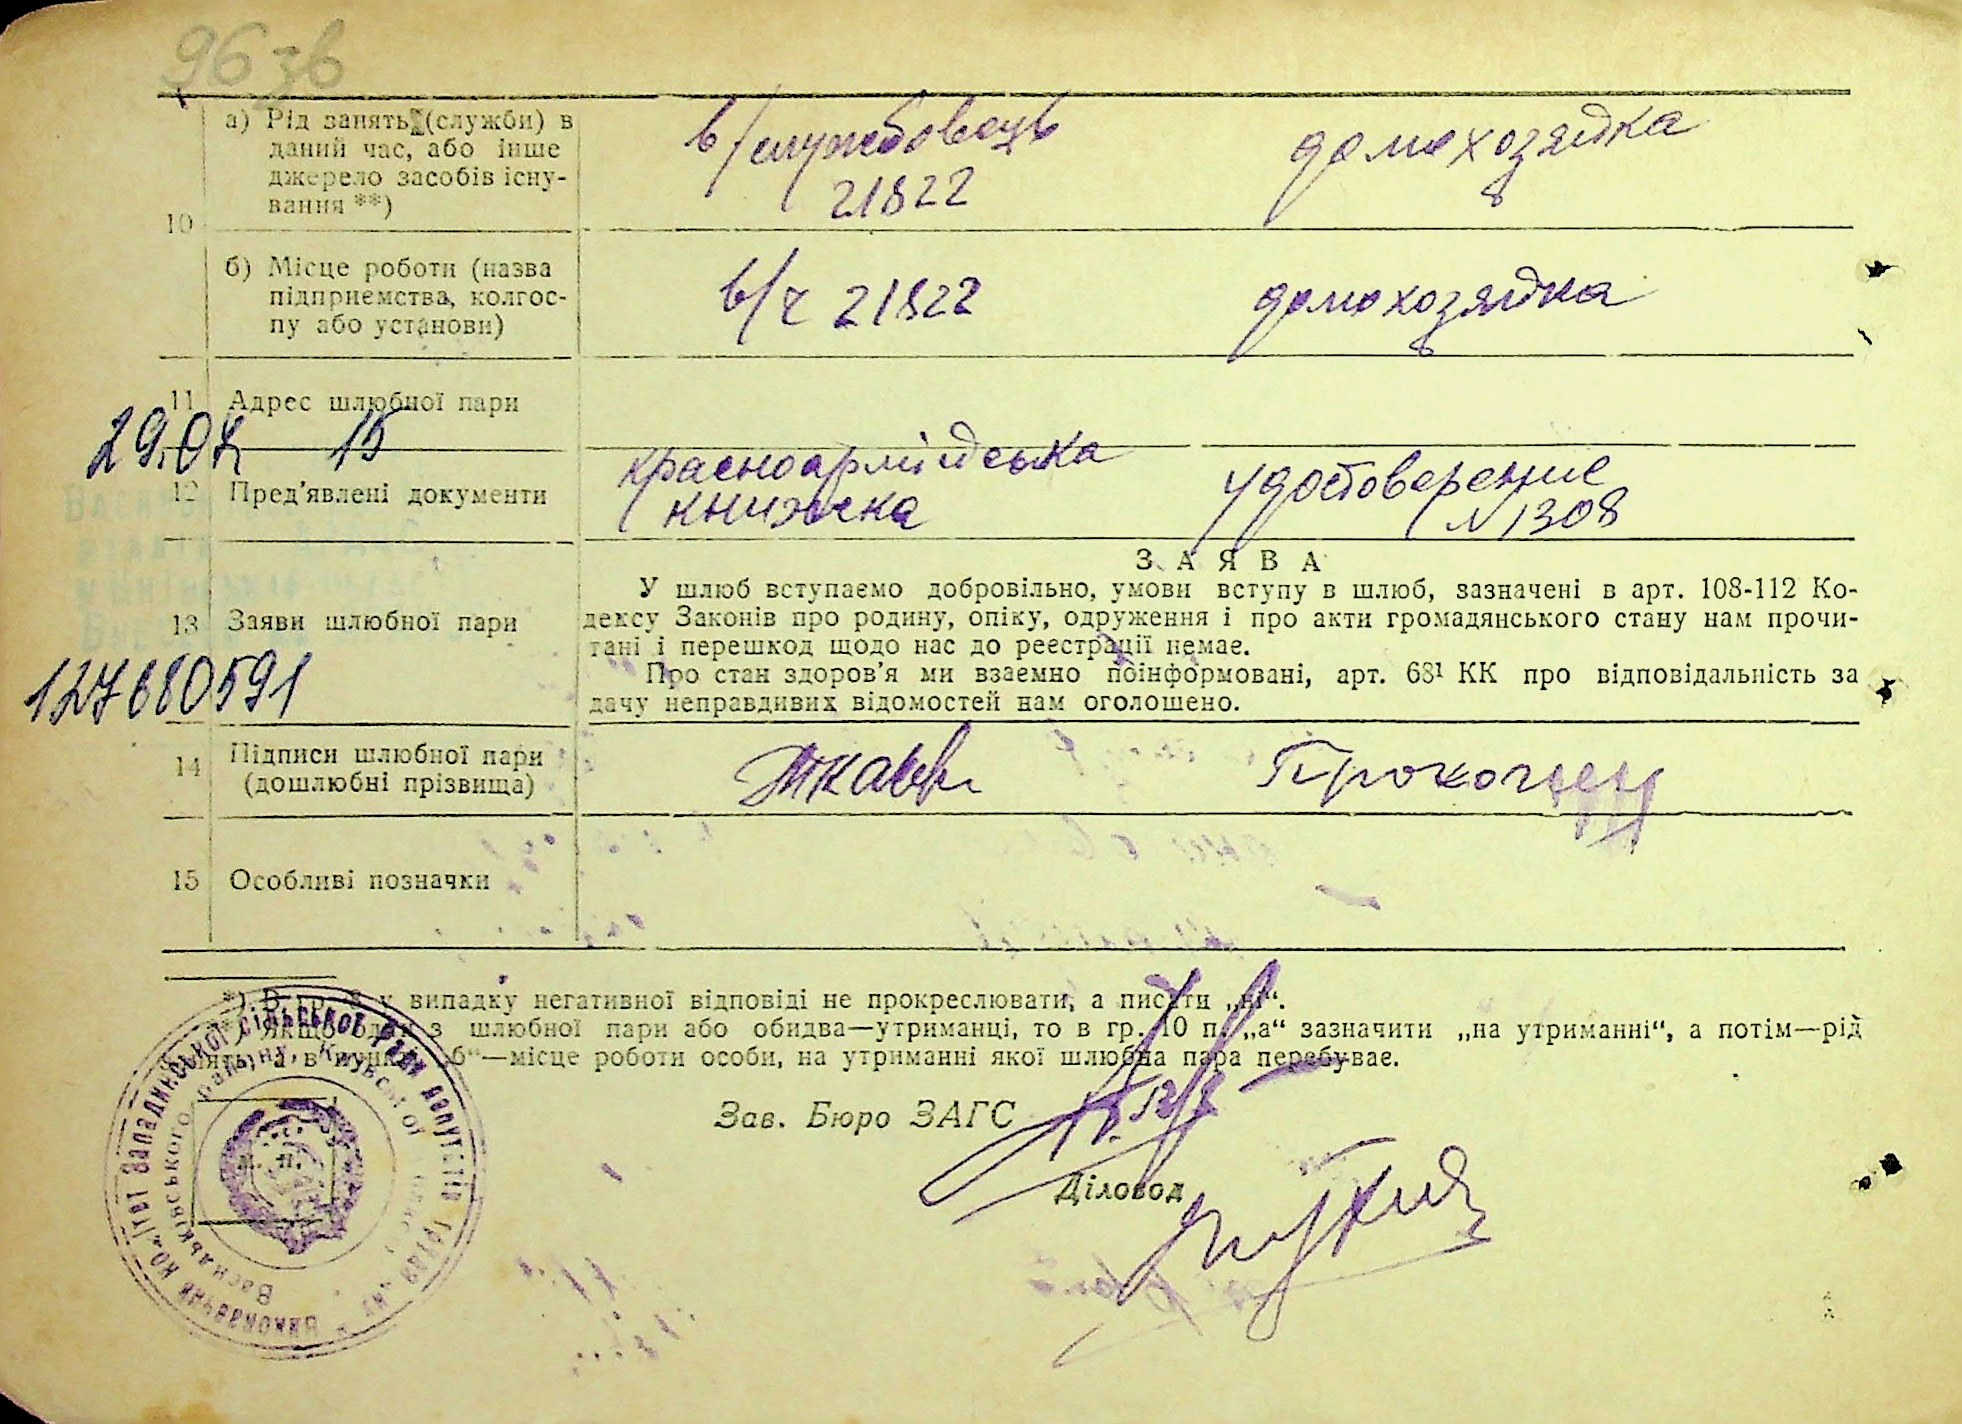 96 зв
а) Рід занять (служби) в
даний час, або інше
джерело засобів існу-
вання **)
в/службовець
21822
домохозяйка
10
б) Місце роботи (назва
підприємства, колгос-
пу або установи)
в/ч 21822
домохозяйка
11 Адрес шлюбної пари
29.07 15
12 Пред'явлені документи
красноармійська
книжка
удостоверение
N 1308
ЗАЯВА
13 Заяви шлюбної пари
У шлюб вступаємо добровільно, умови вступу в шлюб, зазначені в арт. 108-112 Ко-
дексу Законів про родину, опіку, одруження і про акти громадянського стану нам прочи-
тані і перешкод щодо нас до реєстрації немає.
Про стан здоров'я ми взаємно поінформовані, арт. 68¹ КК про відповідальність за
дачу неправдивих відомостей нам оголошено.
127680591
14 Підписи шлюбної пари
(дошлюбні прізвища)
15 Особливі позначки
*) В гр. 8 у випадку негативної відповіді не прокреслювати, а писати „ні“.
**) Якщо один з шлюбної пари або обидва—утриманці, то в гр. 10 п. „а“ зазначити „на утриманні“, а потім—рід
занять, а в пункті „б“—місце роботи особи, на утриманні якої шлюбна пара перебуває.
Зав. Бюро ЗАГС
Діловод
М. П.
Виконавчий Ко.ітет Западинської сільської Ради депутатів трудящих
Васильківського району, Київської області